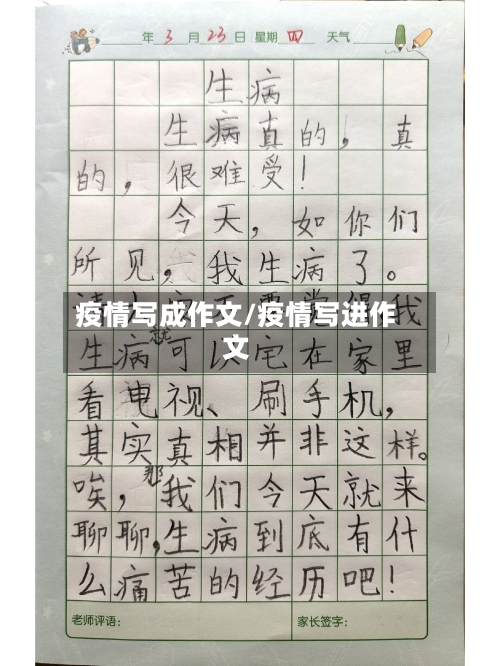 年3月23日 星期四 天气
生病
生病真的，真
的，很难受！
今天，如你们
所见，我生病了。
疫情写成作文/疫情写进作
文
我
生病就可以宅在家里
看电视、刷手机，
其实真相并非这样。
唉，那我们今天就来
聊聊，生病到底有什
么痛苦的经历吧！
老师评语： 家长签字：